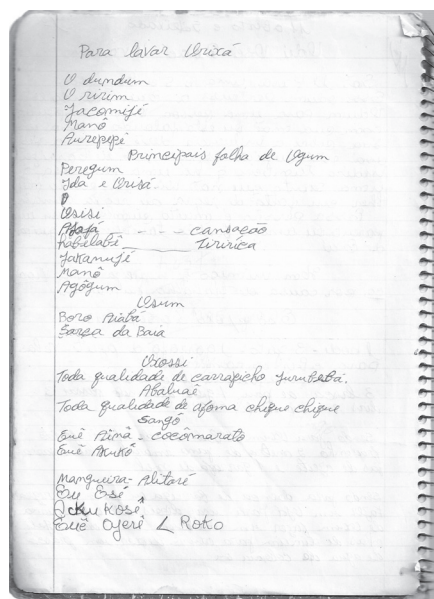 Para lavar Orixá
O dundum
O ririm
Jacomijé
Manô
Aurepepê
Principais folha de Ogum
Peregum
Ida e Orisá
Osisi
Afafá - - - - cansação
Kabelabê ______ Tiririca
Jakamijé
Manô
Agôgum
Osum
Boro Aiabá
Sarça da Baia
Oxossi
Toda qualidade de carrapicho jurubeba.
Abaluaê
Toda qualidade de afoma chique chique
Sangô
Euê Pimã - cocômarato
Euê Akukô
Mangueira - Alitoré
Euê Esé
Ackukosê
Euê Ojerê < Roko